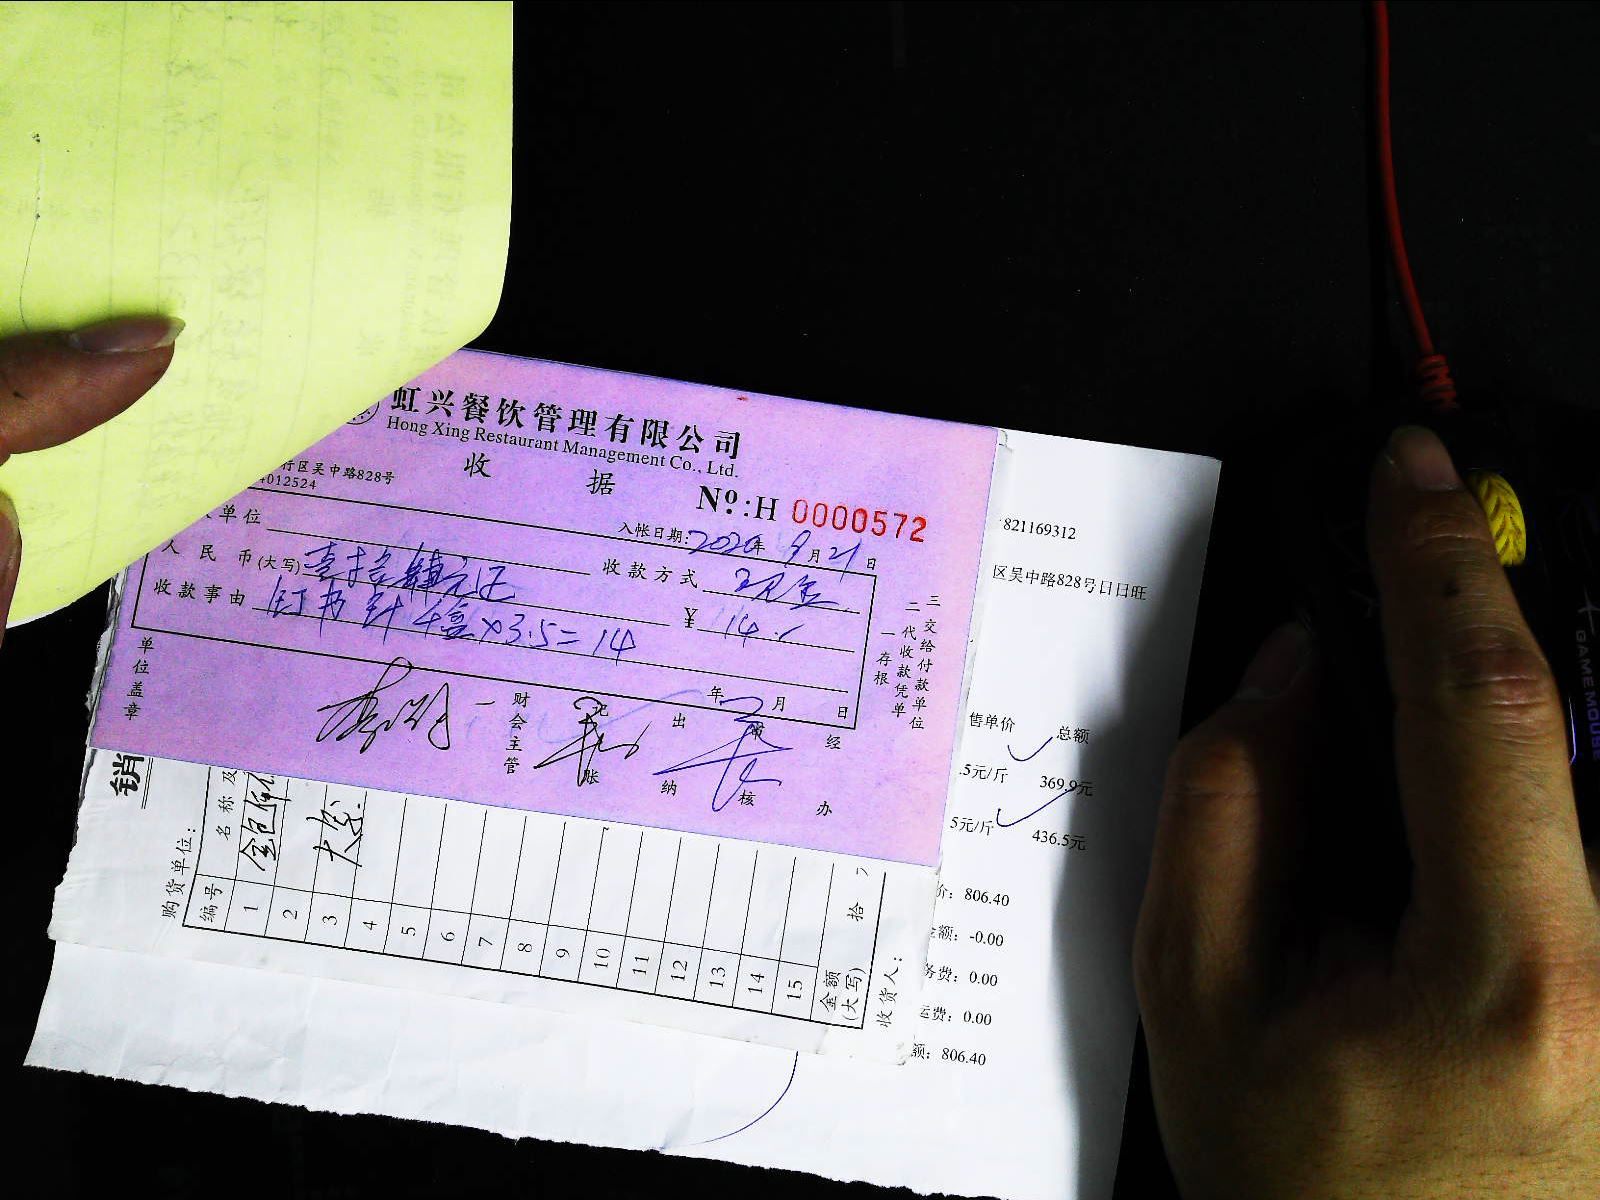 虹兴餐饮管理有限公司
Hong Xing Restaurant Management Co., Ltd.
收 据
行区吴中路828号
4012524
Nº:H 0000572
单位
入帐日期:2020年9月21日
人民币(大写)壹拾肆元正
收款方式 现金
收款事由 钉书针4盒×3.5=14
¥ 14.
年 月 日
单位盖章
财会主管
记账
出纳
审核
经办
一存根
二代收款凭单
三交给付款单位
821169312
区吴中路828号日日旺
售单价 总额
.5元/斤 369.9元
5元/斤 436.5元
价: 806.40
金额: -0.00
务费: 0.00
运费: 0.00
额: 806.40
销
购货单位:
编号 名称及
1
2
3
4
5
6
7
8
9
10
11
12
13
14
15
金额(大写) 拾
收货人:
GAMEMOUSE